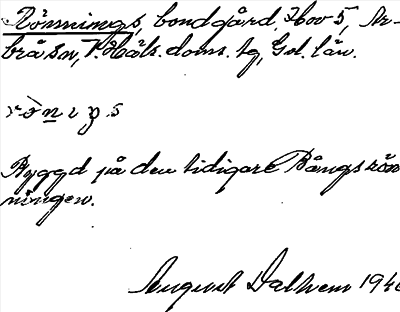 Rönnnings, bondgård, Hov 5, Ar-
brå sn, V. Häls. doms. tg, Gd. län.
rö̀nıŋs
Byggd på den tidigare Bångs rön
ningen.
August Dalhem 194